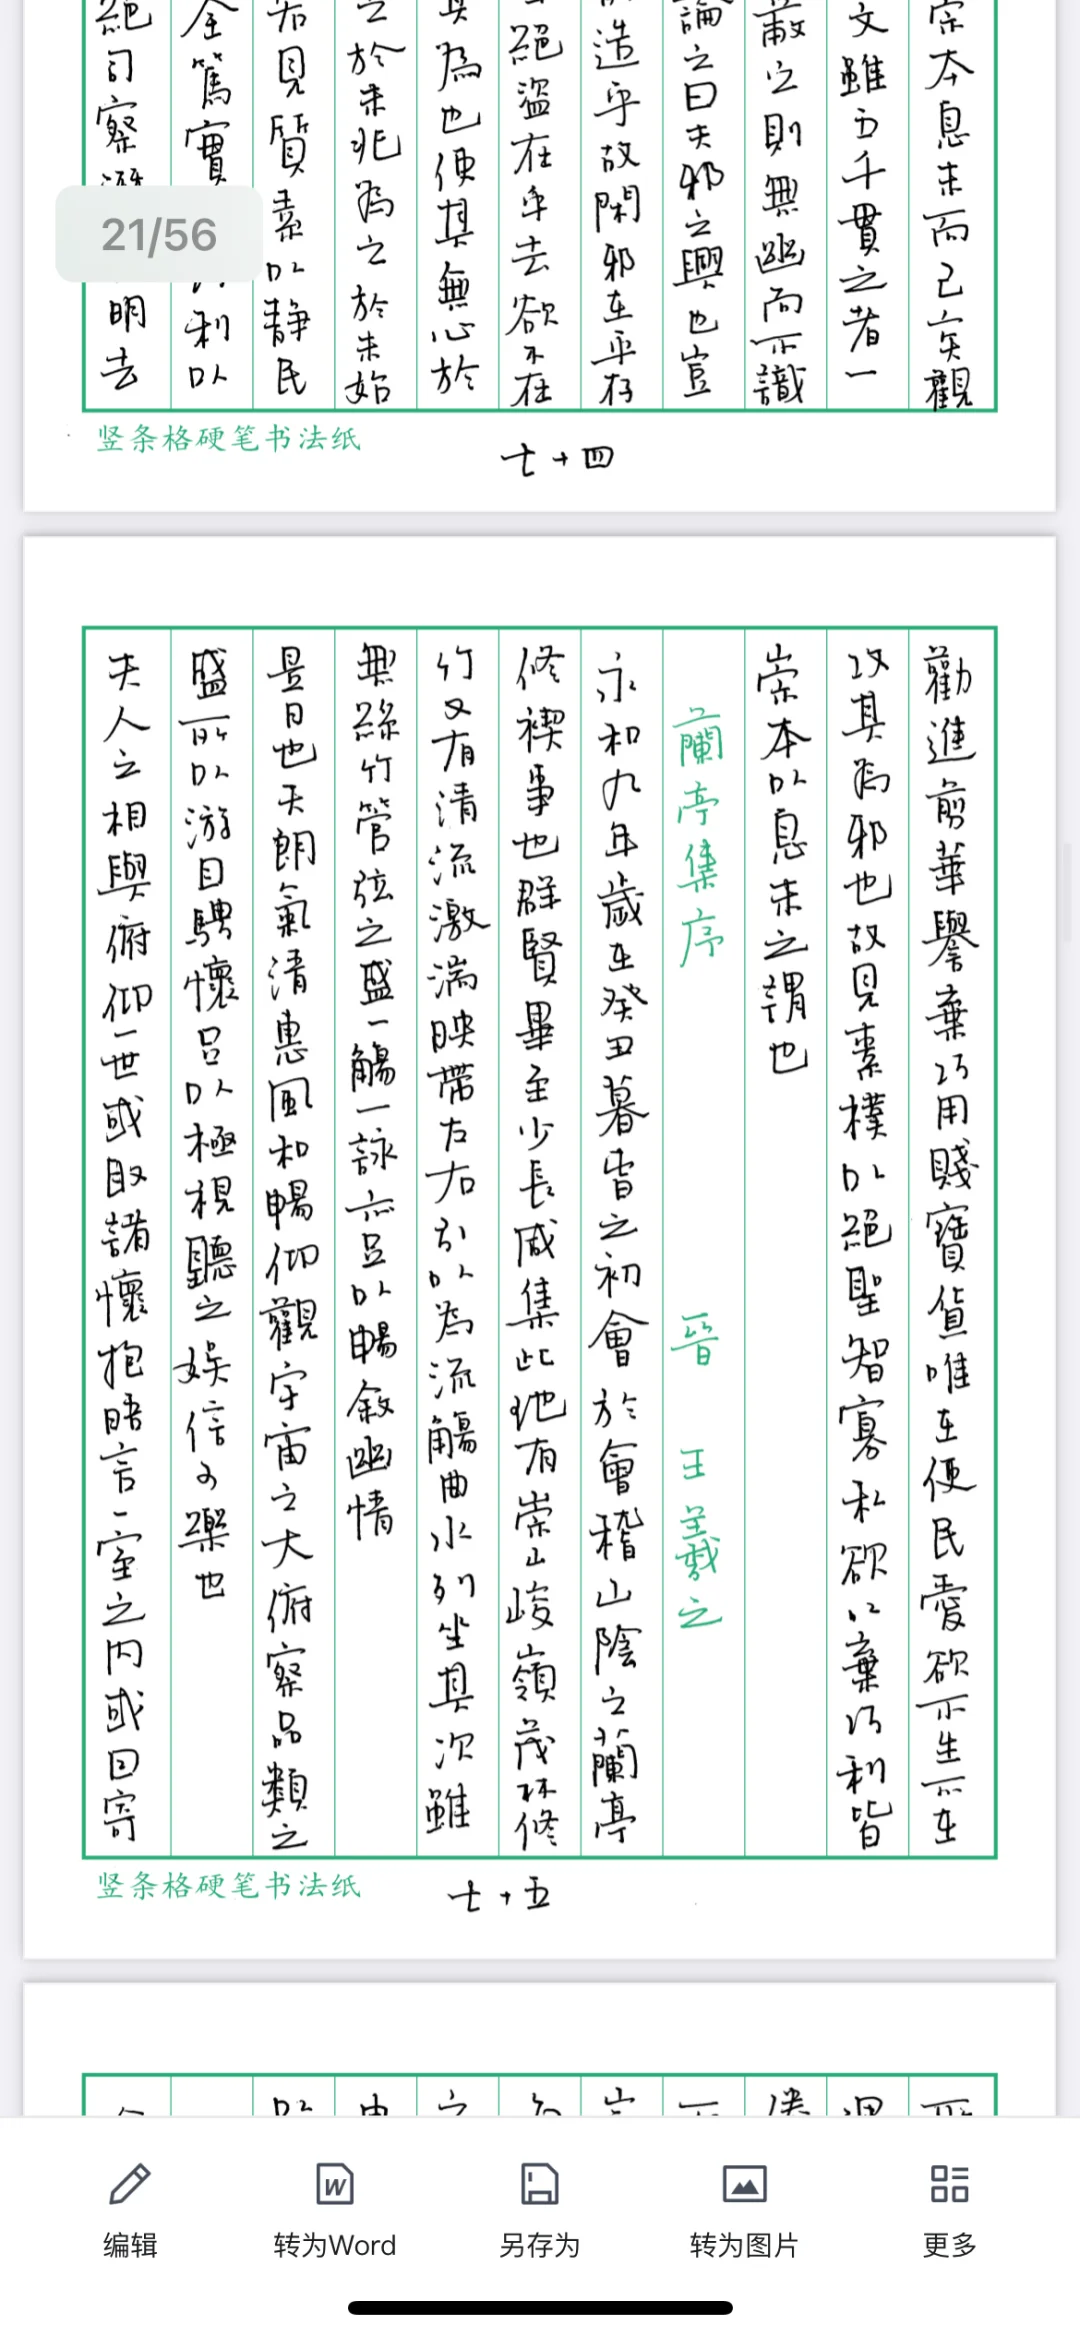 宗本息末而已矣觀
文雖五千貫之者一
蔽之則無幽而不識
論之曰夫邪之興也豈
造乎故閑邪在乎存
絕盜在乎去欲不在
其為也使其無心於
之於未兆為之於未始
若見質素以靜民
全篤實 利以
絕司察 明去
21/56
竖条格硬笔书法纸
七十四
勸進剪華譽棄巧用賤寶貨唯在使民愛欲不生不在
攻其為邪也故見素樸以絕聖智寡私欲以棄巧利皆
崇本以息末之謂也
蘭亭集序 晉 王羲之
永和九年歲在癸丑暮春之初會於會稽山陰之蘭亭
修禊事也群賢畢至少長咸集此地有崇山峻嶺茂林修
竹又有清流激湍映帶左右引以為流觴曲水列坐其次雖
無絲竹管弦之盛一觴一詠亦足以暢敘幽情
是日也天朗氣清惠風和暢仰觀宇宙之大俯察品類之
盛所以游目騁懷足以極視聽之娛信可樂也
夫人之相與俯仰一世或取諸懷抱晤言一室之內或因寄
竖条格硬笔书法纸
七十五
编辑
转为Word
另存为
转为图片
更多